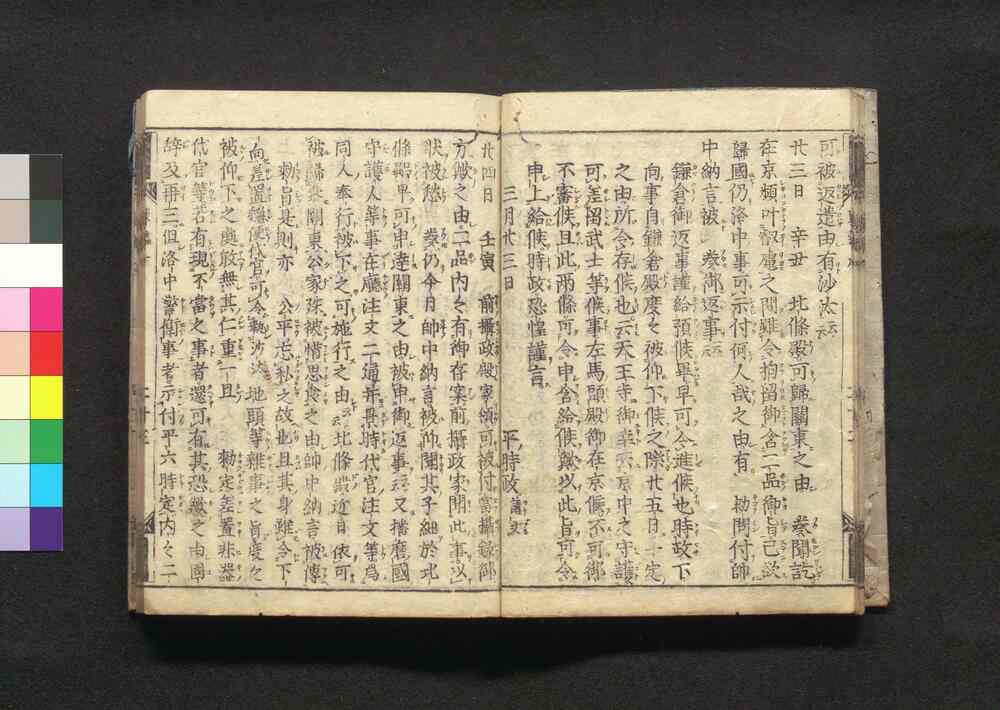 可被返遣由有沙汰云云
廿三日　辛丑　北條殿可歸關東之由　奏聞訖
在京頻叶叡慮之間雖令拘留御含二品御旨已欲
歸國仍洛中事可示付何人哉之由有　勅問付帥
中納言被　奏御返事云云
鎌倉御返事謹給預候畢早可令進候也時政下
向事自鎌倉殿度々被仰下候之際廿五日一定
之由所令存候也云天王寺御幸云京中之守護
可差留武士等候事左馬頭殿御在京候不可御
不審候且此兩條可令申含給候歟以此旨可令
申上給候時政恐惶謹言
三月廿三日　平時政請文
廿四日　壬寅　前攝政殿家領可被付當攝籙御
方歟之由二品内々有御存案前攝政家聞此事以
状被愁　奏仍今月帥中納言被仰聞其子細於北
條殿畢可申達關東之由被申御返事云云又播磨國
守護人等事在廳注文二通并景時代官注文等爲
同人奉行被下之可施行之由云云北條殿近日依可
被歸來關東公家殊被惜思食之由帥中納言被傳
勅旨是則亦　公平忘私之故也且其身雖令下
向差置穩便代官可令執沙汰　地頭等雜事之旨度々
被仰下之處敢無其仁重一旦　勅定差置非器
代官等若有現不當之事者還可有其恐歟之由固
辞及再三但洛中警衛事者示付平六時定内々二